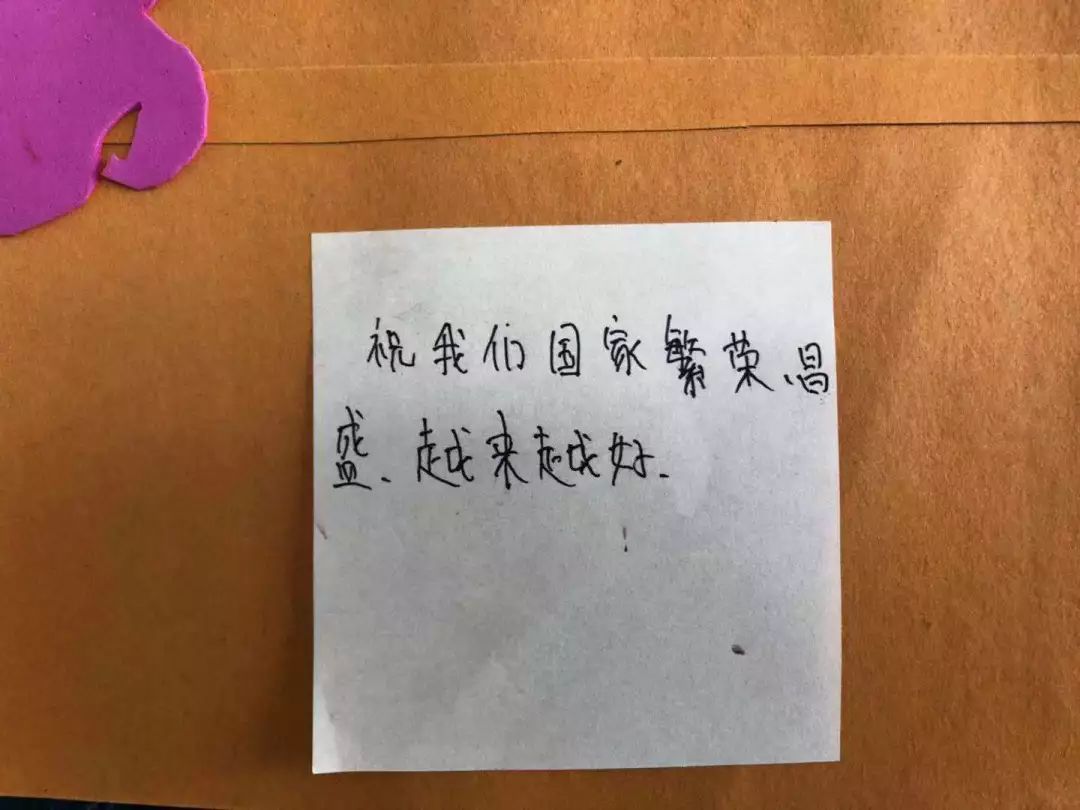 祝我们国家繁荣昌
盛、越来越好.